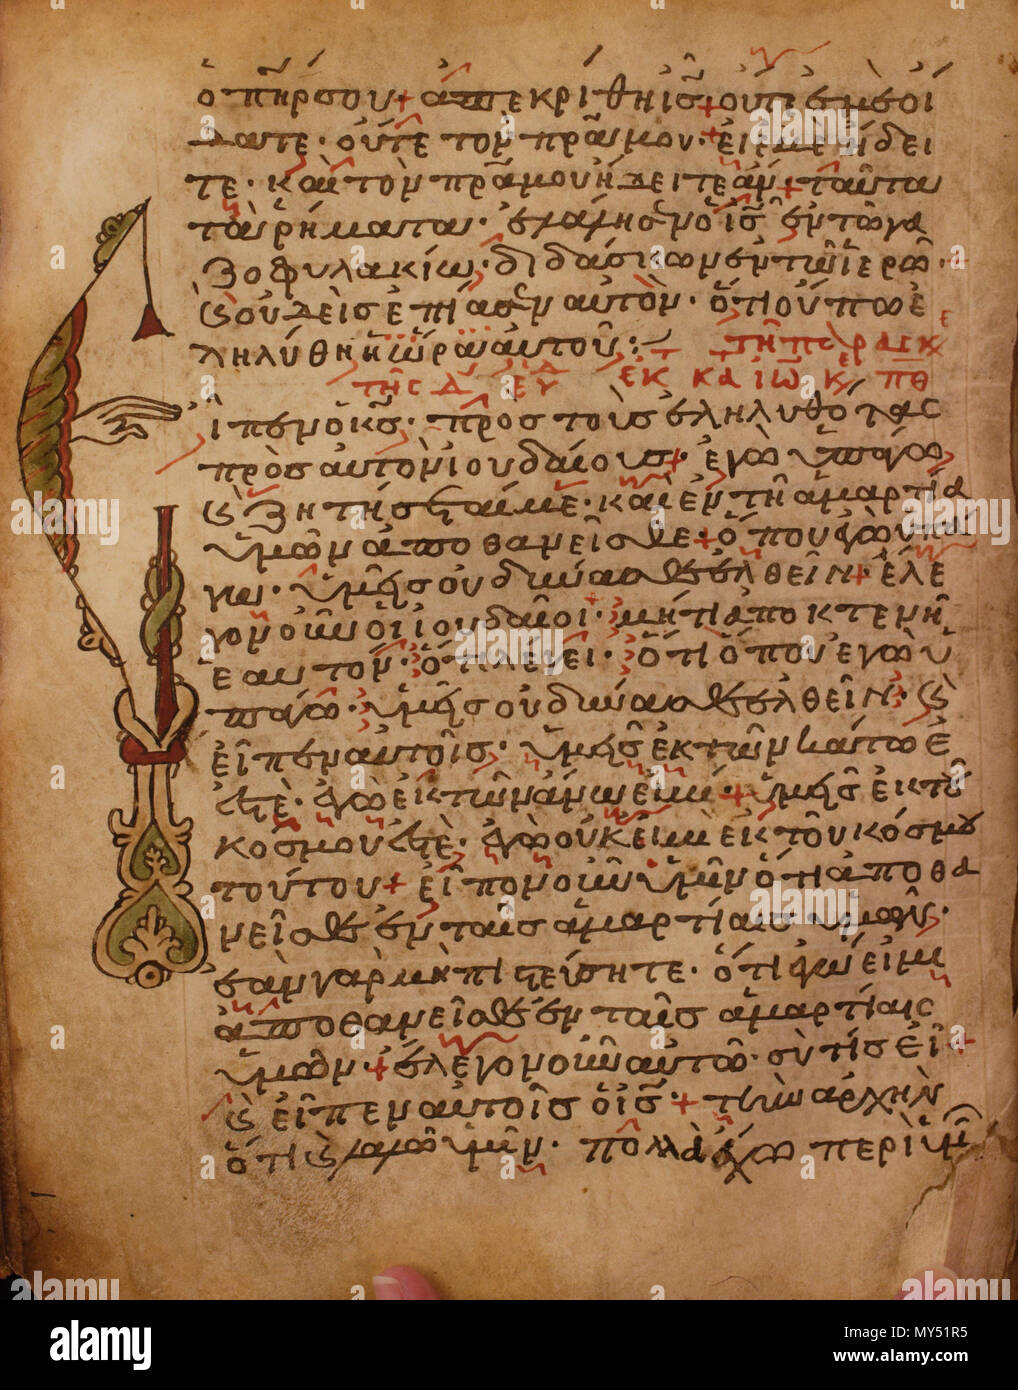 ὁ πηρ σου + ἀπεκρίθη ὁ ις + οὔτε ἐμὲ οἴ
δατε · οὔτε τὸν πρα μου · + εἰ ἐμὲ ᾔδει
τε · καὶ τὸν πρα μου ᾔδειτε ἄν + ταῦτα
τὰ ῥήματα · ἐλάλησεν ὁ ις ἐν τῷ γα
ζοφυλακίω · διδάσκων ἐν τῷ ἱερῷ ·
ϗ οὐδεὶς ἐπίασεν αὐτὸν · ὅτι οὔπω ἐ
ληλύθη ἡ ὥρα αὐτοῦ : τῇ παρασκ
τῆς Δ εὐ ἐκ κα ἰω κε πθ
ἶπεν ὁ κς · πρὸς τοὺς ἐληλυθότας
πρὸς αὐτὸν ἰουδαίους + ἐγὼ ὑπάγω
ϗ ζητήσεταί με · καὶ ἐν τῇ ἁμαρτία
ὑμῶν ἀποθανεῖσθε + ὅπου ἐγὼ ὑπά
γω · ὑμεῖς οὐ δύνασθε ἐλθεῖν + ἔλε
γον οὖν οἱ ἰουδαῖοι · μήτι ἀποκτενεῖ
ἑαυτόν · ὅτι λέγει · ὅτι ὅπου ἐγὼ ὑ
πάγω · ὑμεῖς οὐ δύνασθε ἐλθεῖν · ϗ
εἶπεν αὐτοῖς · ὑμεῖς ἐκ τῶν κάτω ἐ
στὲ · ἐγὼ ἐκ τῶν ἄνω εἰμὶ + ὑμεῖς ἐκ τοῦ
κόσμου ἐστὲ · ἐγὼ οὐκ εἰμὶ ἐκ τοῦ κόσμου
τούτου + εἶπον οὖν ὑμῖν ὅτι ἀποθα
νεῖσθε ἐν ταῖς ἁμαρτίαις ὑμῶν ·
ἐὰν γὰρ μὴ πιστεύσητε · ὅτι ἐγώ εἰμι
ἀποθανεῖσθε ἐν ταῖς ἁμαρτίαις
ὑμῶν + ἔλεγον οὖν αὐτῷ · σὺ τίς εἶ +
ϗ εἶπεν αὐτοῖς ὁ ις + τὴν ἀρχὴν
ὅτι ϗ λαλῶ ὑμῖν · πολλὰ ἔχω περὶ ὑμ
alamy
Image ID: MY51R5
www.alamy.com